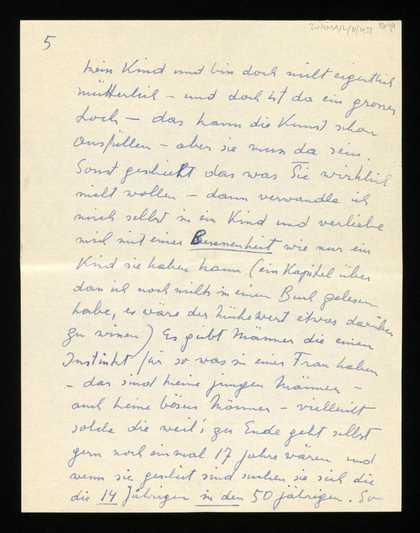 5
kein Kind und bin doch nicht eigentlich
mütterlich – und doch ist da ein grosses
Loch – das kann die Kunst schon
ausfüllen – aber sie muss da sein.
Sonst geschieht das was Sie wirklich
nicht wollen – dann verwandle ich
mich selbst in ein Kind und verliebe
mich mit einer Besessenheit wie nur ein
Kind sie haben kann (ein Kapitel über
das ich noch nichts in einem Buch gelesen
habe, es wäre der Mühe wert etwas darüber
zu wissen) Es giebt Männer die einen
Instinkt für so was in einer Frau haben
– das sind keine jungen Männer –
auch keine bösen Männer – vielleicht
solche die weil's zu Ende geht selbst
gern noch einmal 17 Jahre wären und
wenn sie gescheit sind suchen sie sich die
die 14 Jährigen in den 50 jährigen. So